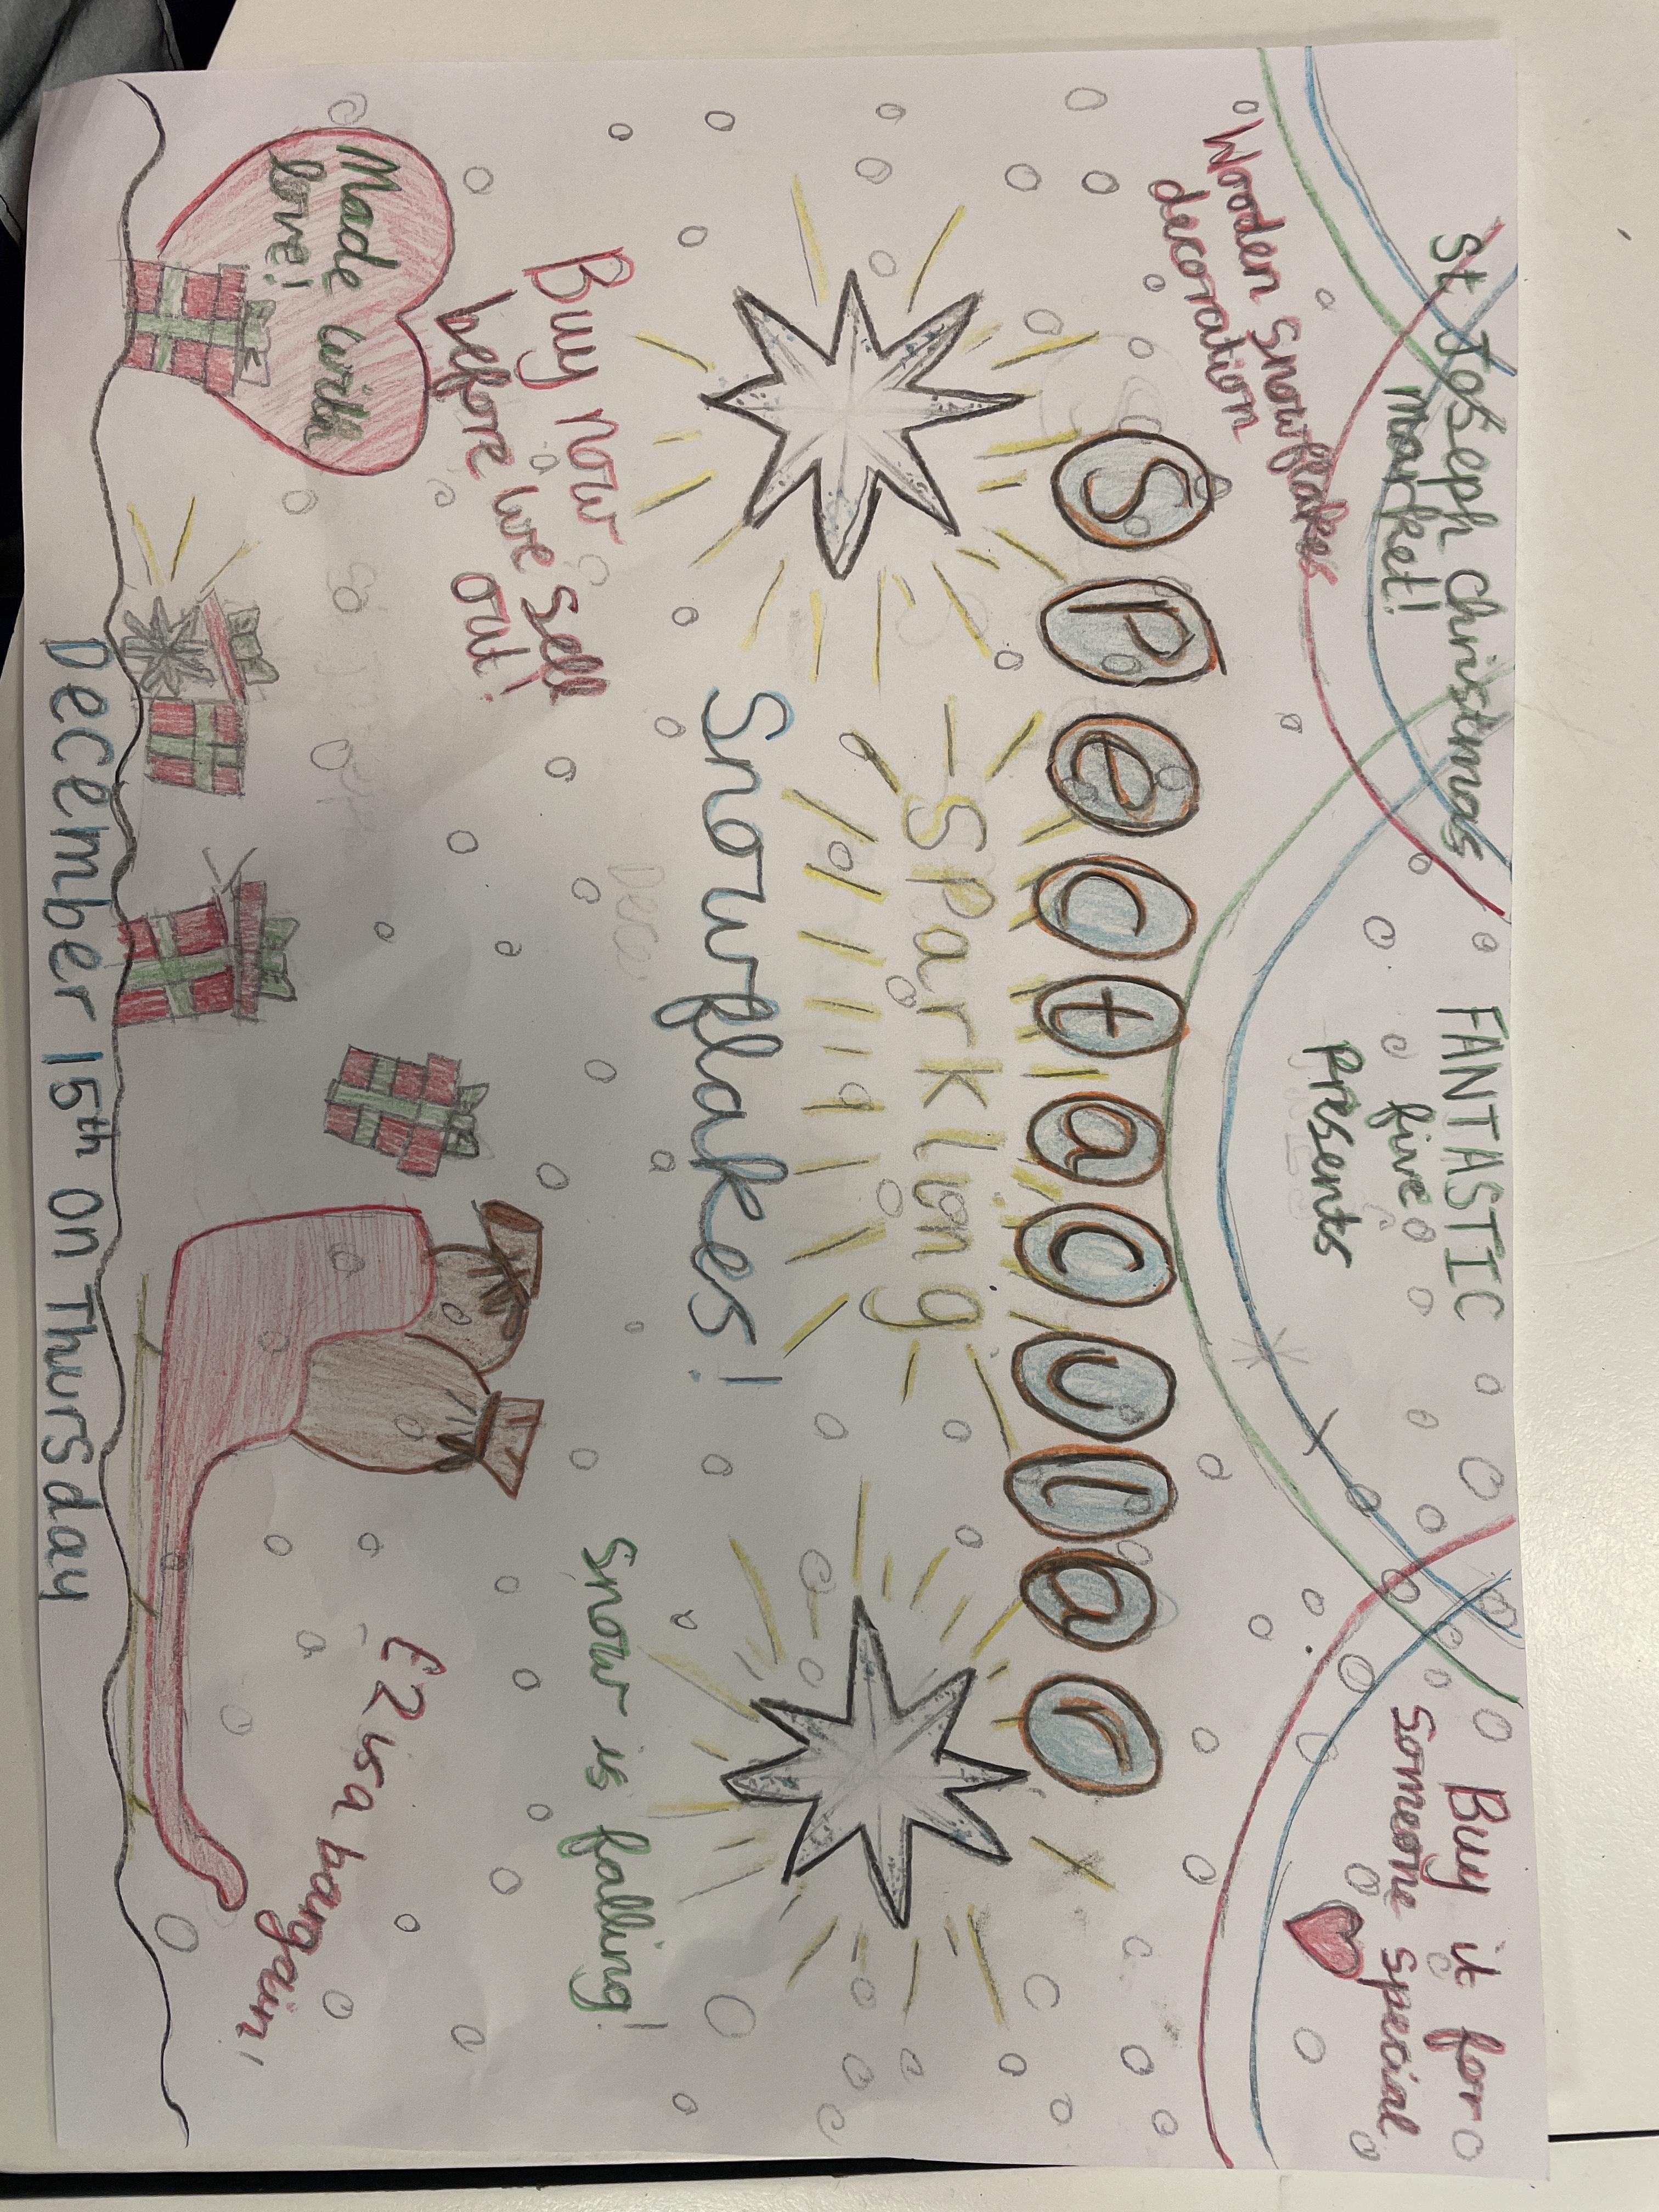 St Joseph christmas
market!
FANTASTIC
five
Presents
Buy it for
Someone special
Wooden Snowflakes
decoration
Spectacular
Sparkling
Snowflakes!
Buy now
before we sell
out!
Snow is falling!
Made with
love!
£2 is a bargain!
December 15th on Thursday